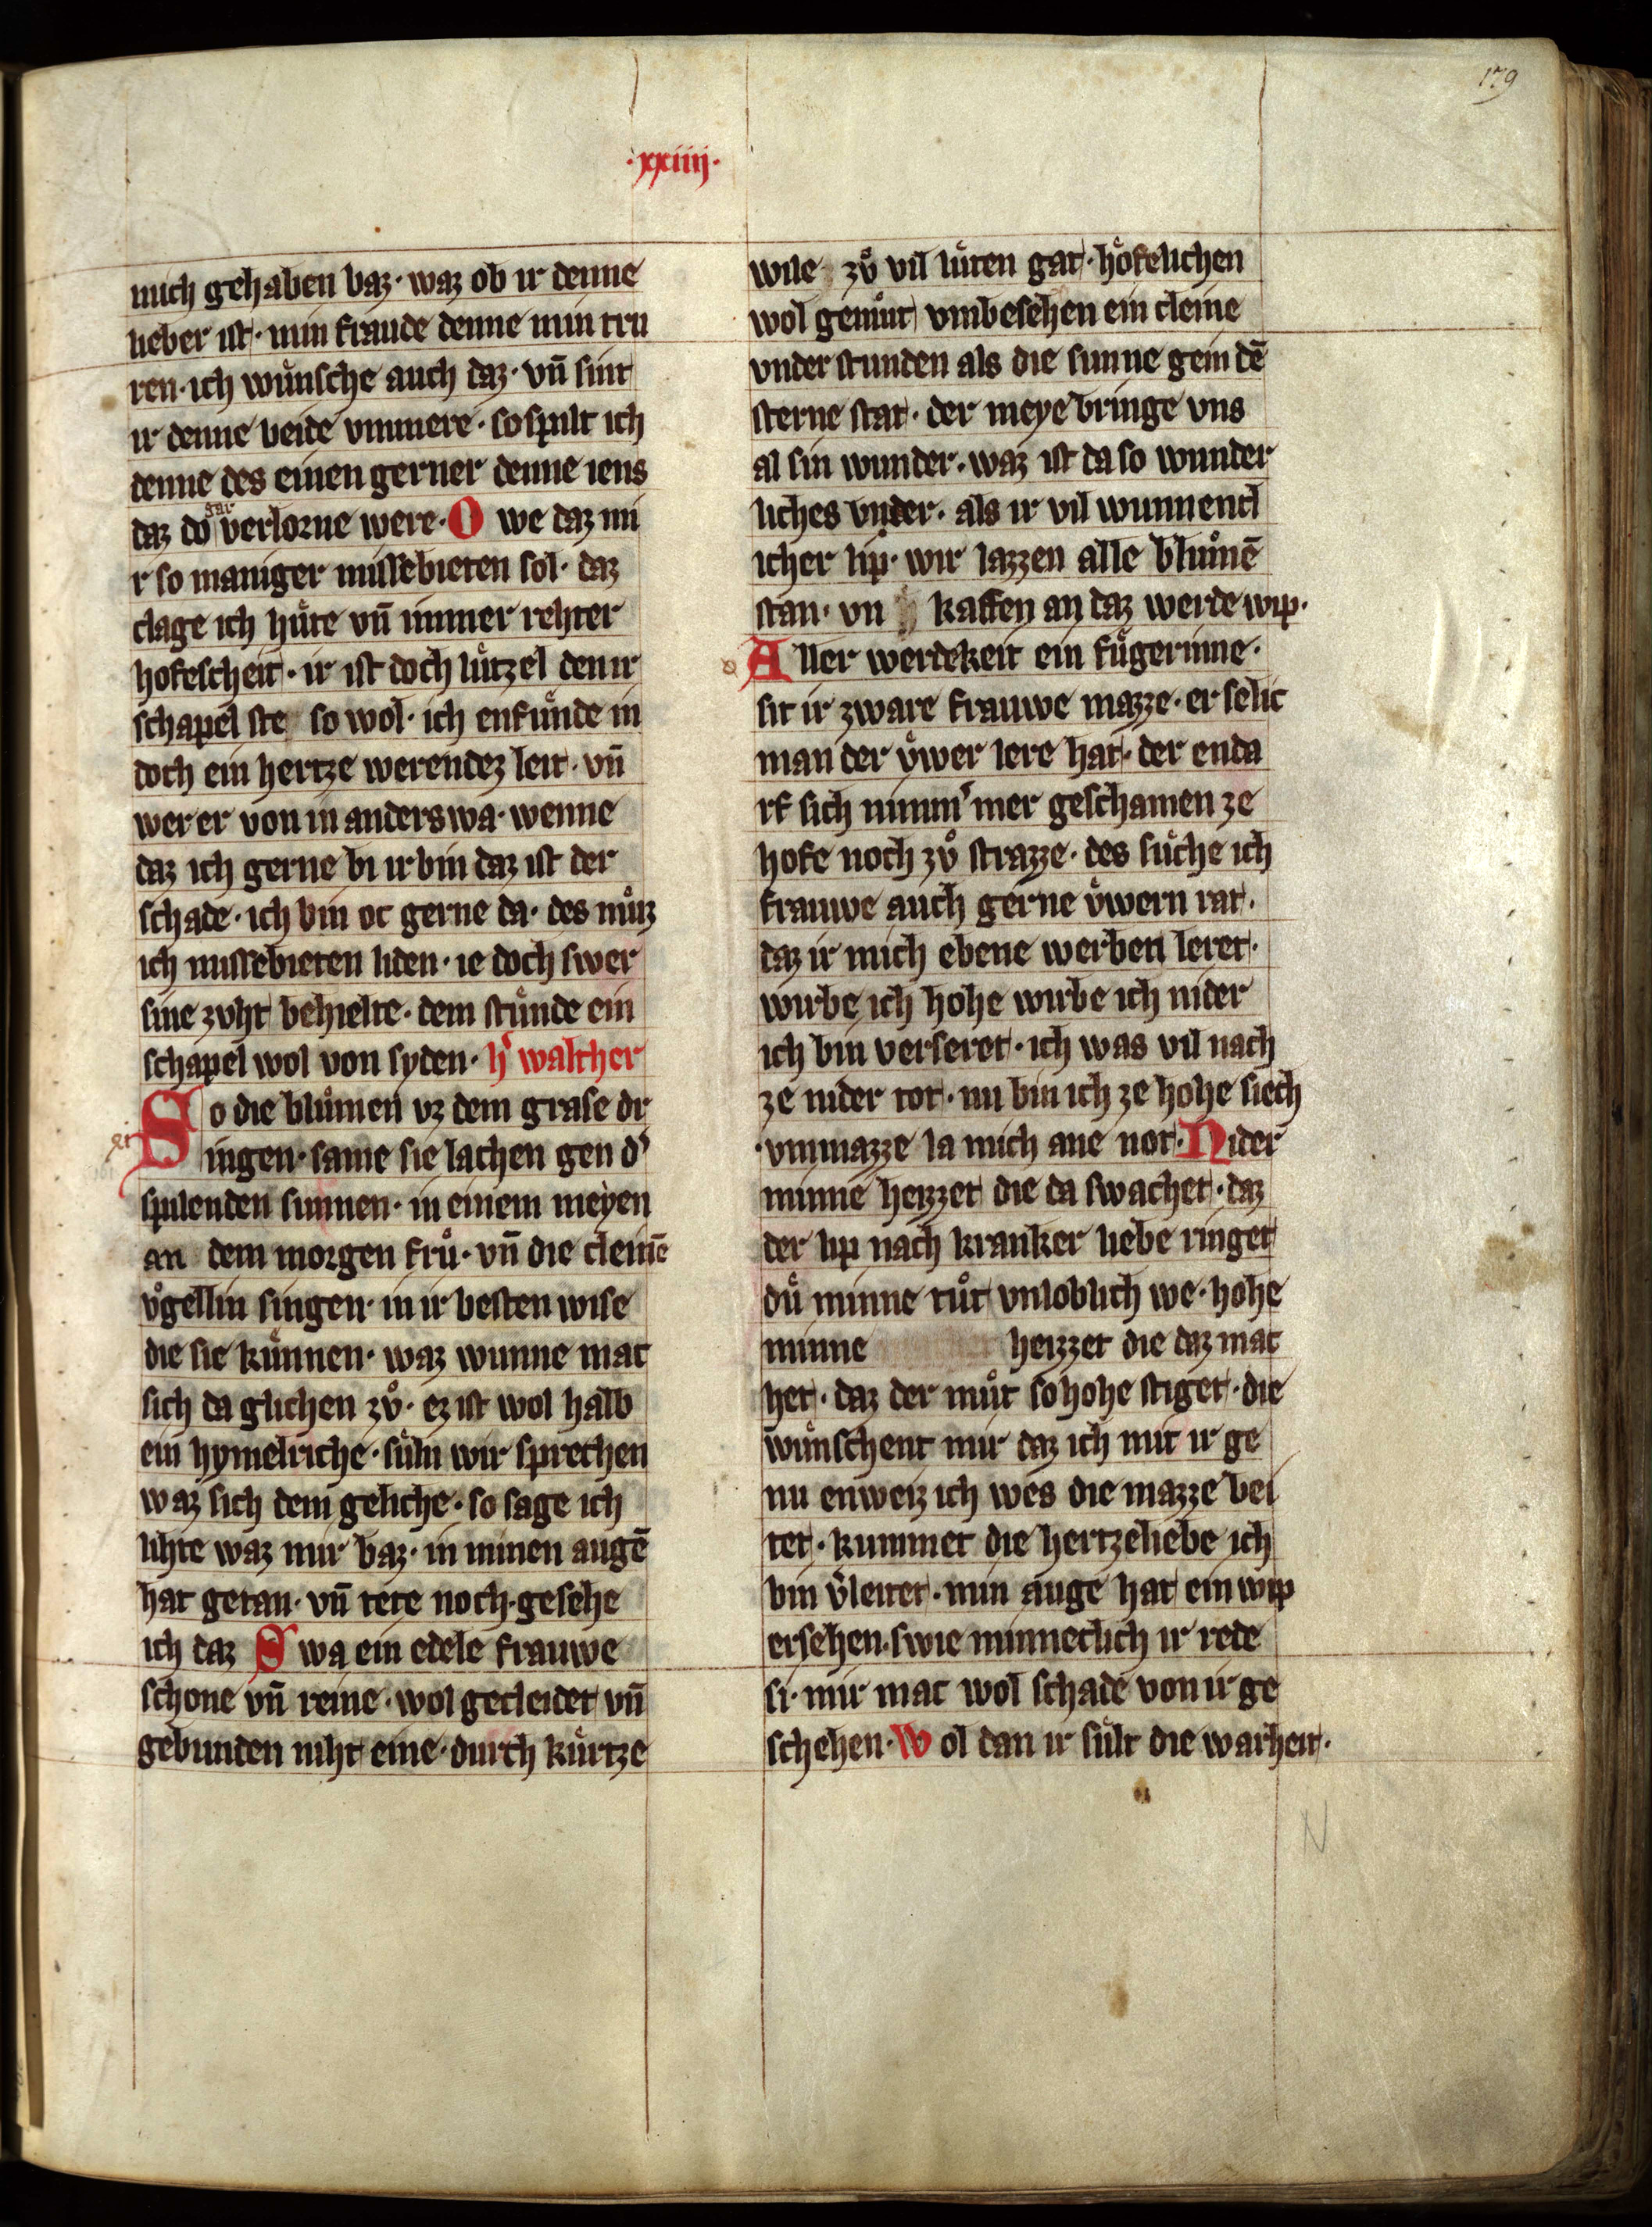 179
·xxiiij·
mich gehaben baz· waz ob ir denne
lieber ist· min fraude denne min tru
ren· ich wuͤnsche auch daz· vn̄ sint
ir denne beide vnmere· so spilt ich
denne des einen gerner denne iens
daz do gar verlorne were· O we daz mi
r so maniger missebieten sol· daz
clage ich huͤte vn̄ immer rehter
hofescheit· ir ist doch luͤtzel den ir
schapel ste so wol· ich enfuͤnde in
doch ein hertze werendez leit· vn̄
wer er von in anders wa· wenne
daz ich gerne bi ir bin daz ist der
schade· ich bin oc gerne da· des muͦz
ich missebieten liden· ie doch swer
sine zvht behielte· dem stuͤnde ein
schapel wol von syden· h' walther
So die bluͦmen vz dem grase dr
ingen· same sie lachen gen d'
spilenden sunnen· in einem meyen
an dem morgen fruͦ· vn̄ die cleinē
voͤgellin singen· in ir besten wise
die sie kuͤnnen· waz wunne mac
sich da glichen zvͦ· ez ist wol halb
ein hymelriche· suͤln wir sprechen
waz sich dem geliche· so sage ich
lihte waz mir baz· in minen augē
hat getan· vn̄ tete noch· gesehe
ich daz Swa ein edele frauwe
schone vn̄ reine· wol gecleidet vn̄
gebunden niht eine· durch kuͤrtze
wile zvͦ vil luͤten gat· hoͤfelichen
wol gemuͦt vmbesehen ein cleine
vnder stunden als die sunne gein dē
sterne stat· der meye bringe vns
al sin wunder· waz ist da so wunder
liches vnder· als ir vil wunnencl
icher lip· wir lazzen alle bluͦmē
stan· vn kaffen an daz werde wip·
Aller werdekeit ein fuͤgerinne·
sit ir zware frauwe mazze· er selic
man der vͤwer lere hat· der enda
rf sich nimm'mer geschamen ze
hofe noch zvͦ strazze· des suͤche ich
frauwe auch gerne vͤwern rat·
daz ir mich ebene werben leret·
wirbe ich hohe wirbe ich nider
ich bin verseret· ich was vil nach
ze nider tot· nu bin ich ze hohe siech
·vnmazze la mich ane not· Nider
minne heizzet die da swachet· daz
der lip nach kranker liebe ringet
duͤ minne tuͦt vnloblich we· hohe
minne heizzet die daz mac
het· daz der muͦt so hohe stiget· die
wuͤnschent mir daz ich mit ir ge
nu enweiz ich wes die mazze bei
tet· kummet die hertzeliebe ich
bin v'leitet· min auge hat ein wip
ersehen· swie minneclich ir rede
si· mir mac wol schade von ir ge
schehen· Wol dan ir suͤlt die warheit·